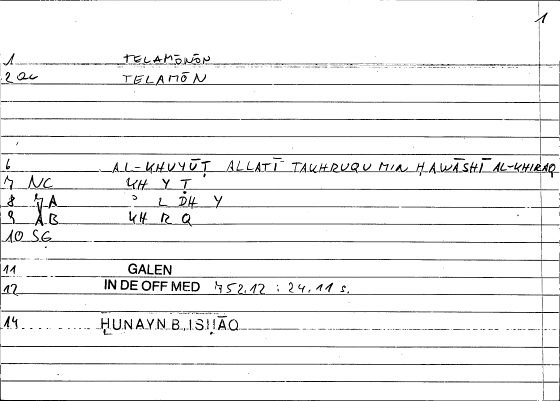 1
1 TELAMŌNŌN
2 a TELAMŌN
6 AL-KHUYŪṬ ALLATĪ TAKHRUQU MIN ḤAWĀSHĪ AL-KHIRAQ
7 NC KH Y Ṭ
8 7A ʾ L DH Y
9 AB KH R Q
10 SG
11 GALEN
12 IN DE OFF MED 752.12 : 24.11 s.
14 ḤUNAYN B. ISḤĀQ